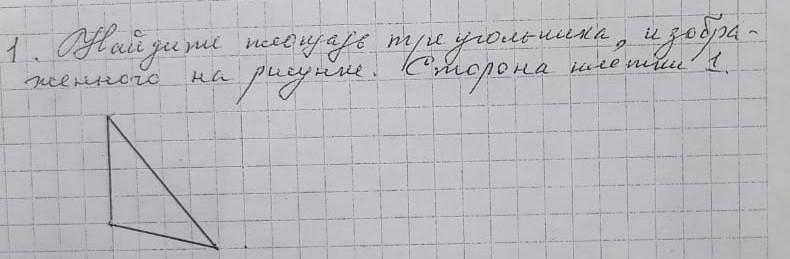 1. Найдите площадь треугольника, изобра-
женного на рисунке. Сторона клетки 1.